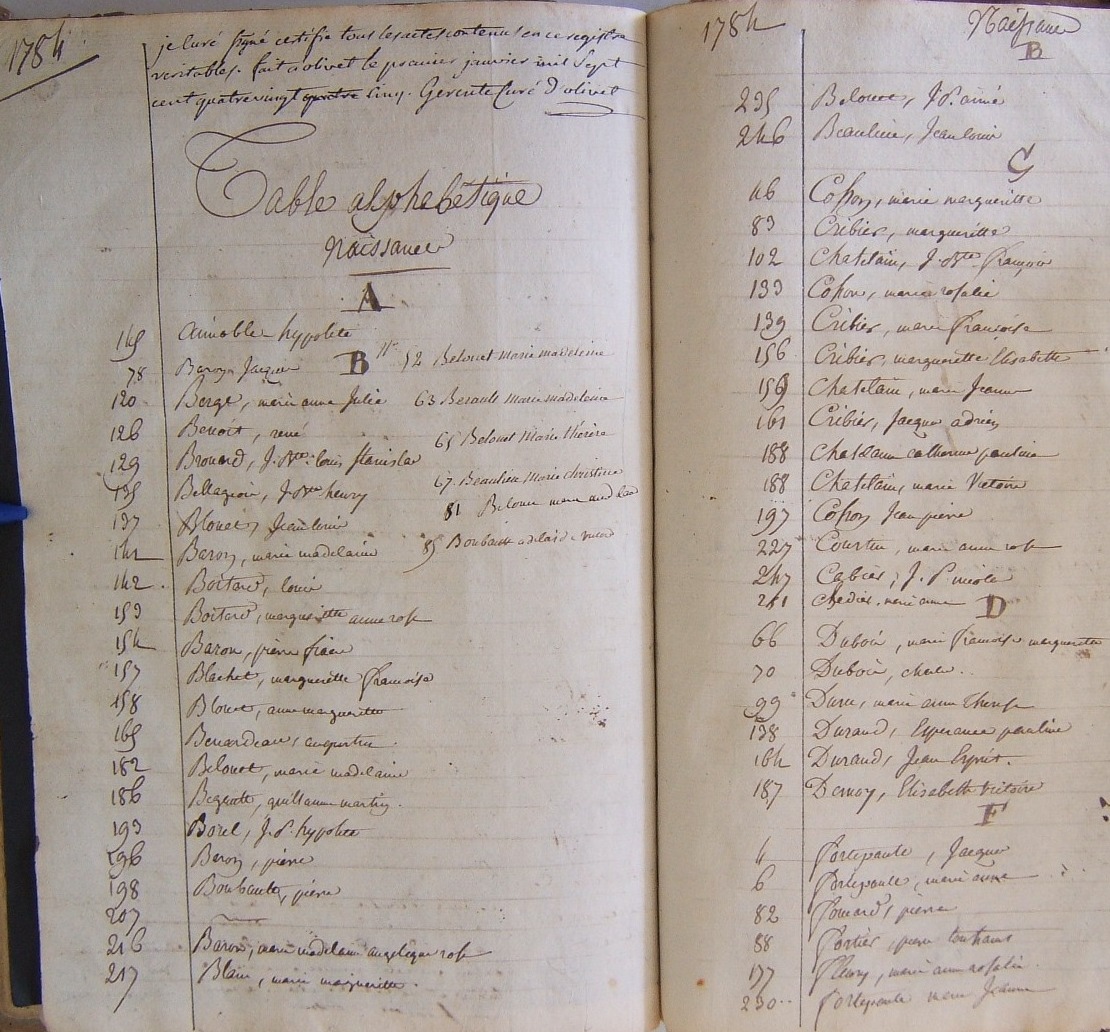 1784
je Curé signé certifie tous les actes contenus en ce registre
veritables. fait a olivet le premier janvier mil sept
cent quatre vingt quatre Cinq. Gerente Curé D'olivet
Table alphabétique
Naissance
A
149 aimable hypolite
B
78 Baron Jacque
120 Berge, marie anne Julie
126 Benoit, rené
129 Brouard, J. Bte louis stanislas
135 J. Bte henry
137 Blouet, Jean louis
141 Baron, marie madelaine
142 Boitard, louis
153 Boitard, margueritte anne rose
154 Baron, pierre
157 Blachet, margueritte francoise
158 Blouet, anne margueritte
165 Benardeau, augustin
182 Belouet, marie madelaine
186 guillaume martin
193 Borel, J. P. hypolite
196 Baron, pierre
198 Boubault, pierre
207
216 Baron, marie madelaine angelique rose
217 Blain, marie margueritte
52 Belouet Marie madeleine
63 Berault Marie madeleine
65 Belouet Marie thérèse
67 Beaulieu Marie christine
81 Belouet marie
85 Boubault adelaide
1784 Naissance
B
235 Belouet, J. P. aimé
246 Beaulieu, Jean louis
C
46 Cosson, marie margueritte
83 Cribier, margueritte
102 Chatelain, J. Bte françois
133 Cosson, marie rosalie
139 Cribier, marie françoise
156 Cribier, margueritte Elisabette
159 Chatelain, marie Jeanne
161 Cribier, Jacque adrien
188 Chatelain catherine pauline
188 Chatelain, marie Victoire
197 Cosson Jean pierre
227 Courtin, marie anne rose
247 Cabier, J. P. nicolas
251 marie anne
D
66 Dubois, marie francoise margueritte
70 Dubois, charle
99 Duru, marie anne Therese
138 Durand, Esperance pauline
164 Durand, Jean Esprit.
187 Elisabeth Victoire
F
4 Fortepaute, Jacque
6 Fortepaute, marie anne
82 pierre
88 Fortier, pierre toussans
177 Fleury, marie anne rosalie
230 Fortepaute marie Jeanne